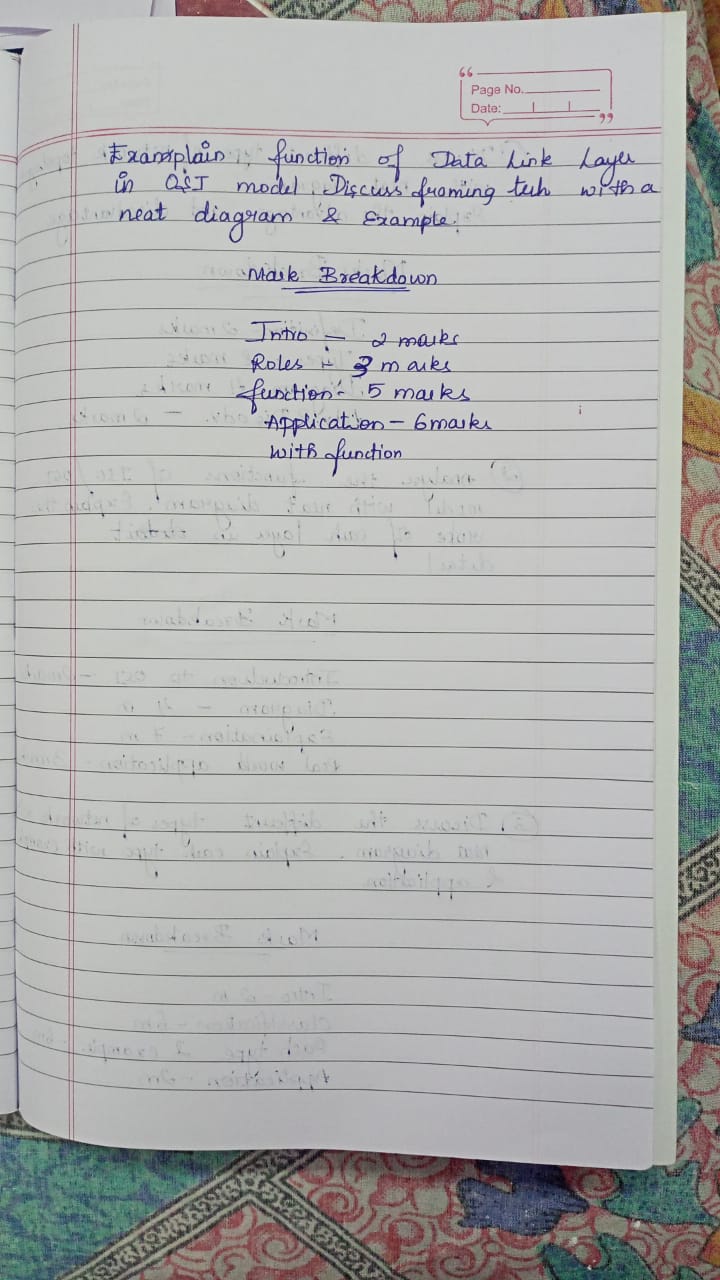 Page No.
Date:
Exansplain function of Data Link Layer
in OSI model. Discuss framing tech with a
neat diagram & Example.
Mark Breakdown
Intro - 2 marks
Roles - 3 marks
function - 5 marks
Application - 6 marks
with function